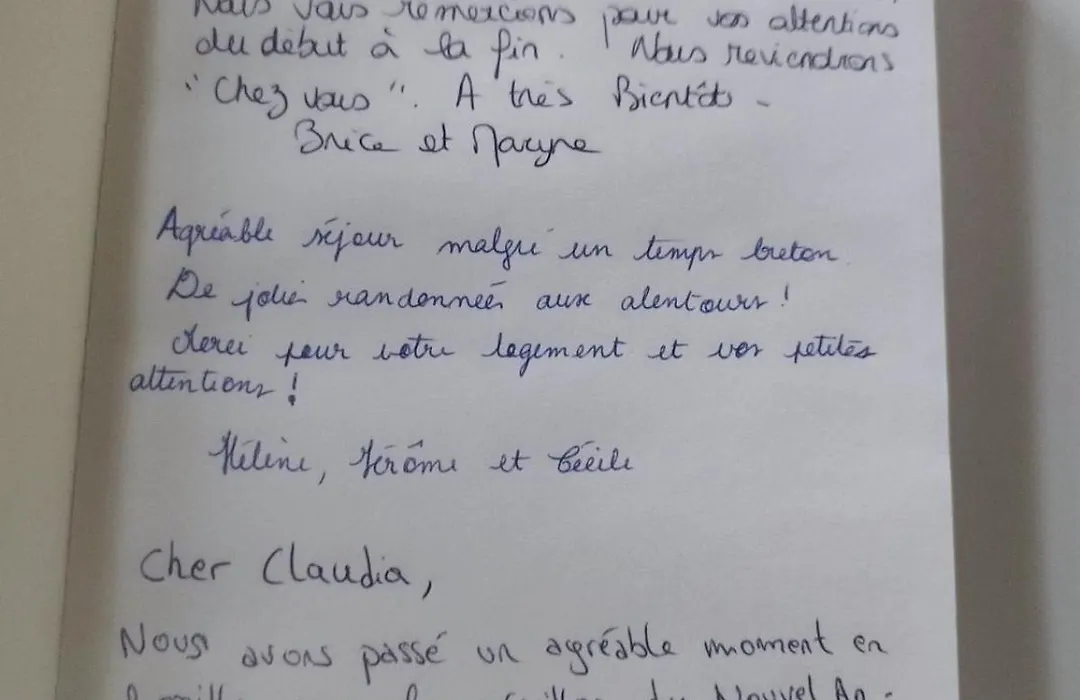 Nous vous remercions pour vos attentions
du début à la fin. Nous reviendrons
"Chez vous". A très Bientôts -
Brice et Maryne
Agréable séjour malgré un temps breton
De jolies randonnées aux alentours !
Merci pour votre logement et vos petites
attentions !
Hélène, Jérôme et Cécile
Cher Claudia,
Nous avons passé un agréable moment en
du Nouvel An